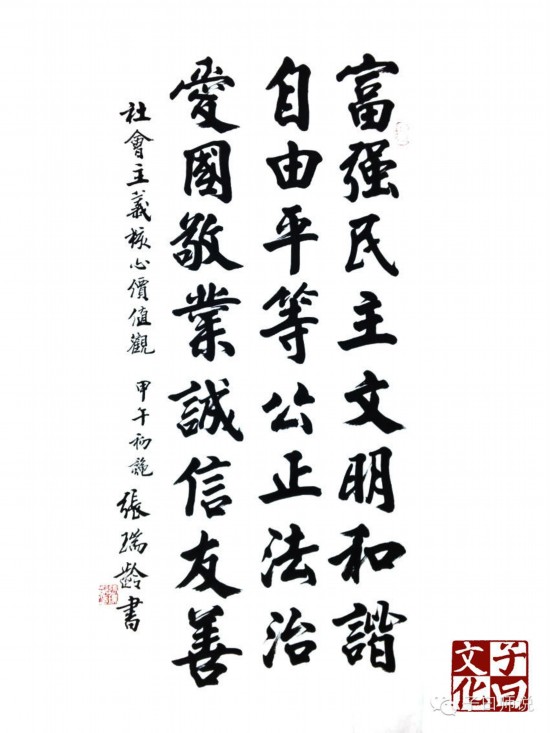 富强民主文明和諧
自由平等公正法治
愛國敬業誠信友善
社會主義核心價值觀 甲午初説 張瑞齡書
子曰
文化
子曰师说